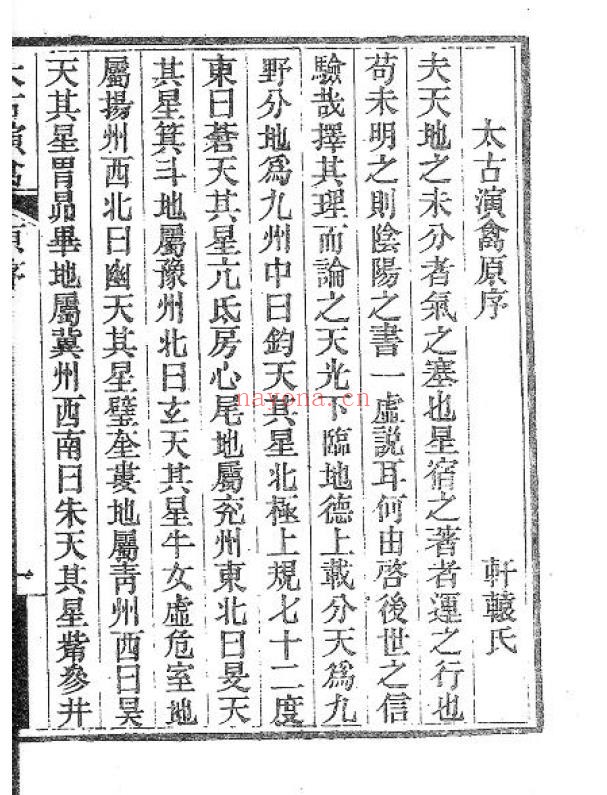 太古演禽原序 軒轅氏
夫天地之未分者氣之塞也星宿之著者運之行也
苟未明之則陰陽之書一虛説耳何由啓後世之信
驗哉擇其理而論之天光下臨地德上載分天爲九
野分地爲九州中曰鈞天其星北極上規七十二度
東曰蒼天其星亢氐房心尾地屬兖州東北曰旻天
其星箕斗地屬豫州北曰玄天其星牛女虛危室地
屬揚州西北曰幽天其星壁奎婁地屬青州西曰昊
天其星胃昴畢地屬冀州西南曰朱天其星觜參井
太古演禽 原序 一
nayona.cn